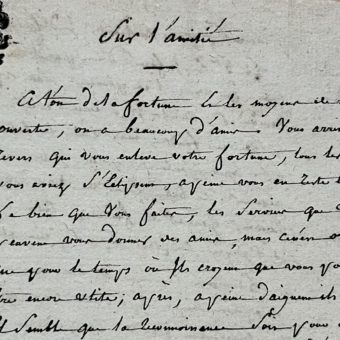 Sur l'amitié
A t'on de la fortune & les moyens de
ouverte, on a beaucoup d'amis. Vous arrive
revers qui vous enleve votre fortune, tous les
vous aviez S'Eclipsent, a peine vous en reste
Le bien que Vous faites, les Services que
peuvent vous donner des amis, mais
que pour le temps où Ils croyent que vous
être encore utile; après, a peine daignent ils
Il Semble que la Reconnoissance Soit pour